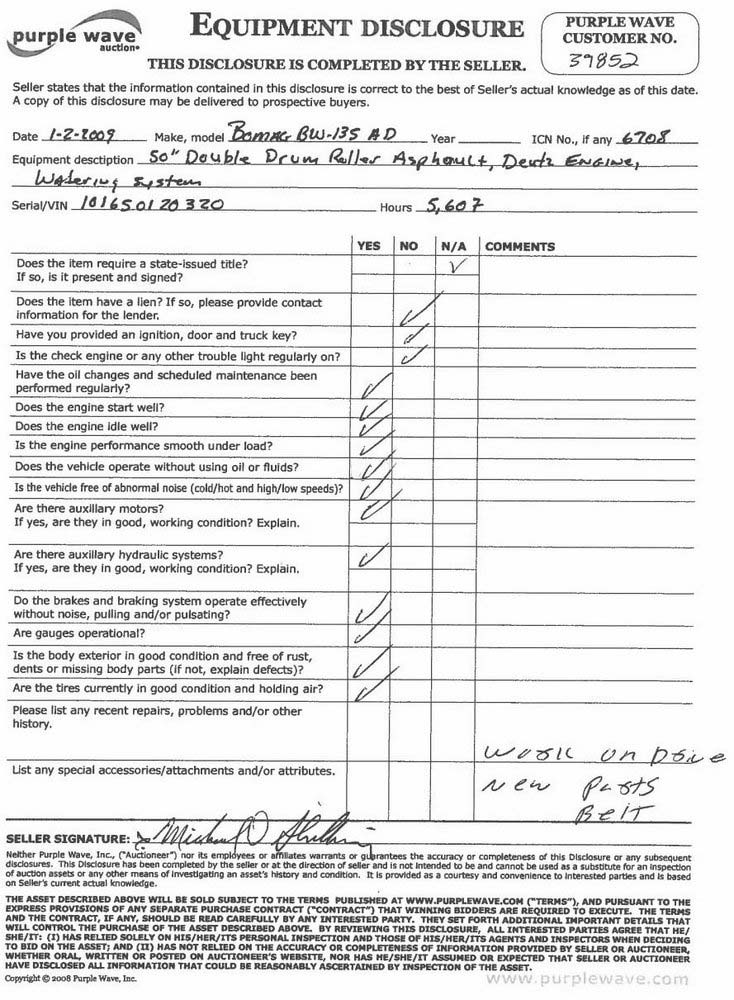 purple wave
auction
EQUIPMENT DISCLOSURE
THIS DISCLOSURE IS COMPLETED BY THE SELLER.
PURPLE WAVE
CUSTOMER NO.
39852
Seller states that the information contained in this disclosure is correct to the best of Seller's actual knowledge as of this date.
A copy of this disclosure may be delivered to prospective buyers.
Date 1-2-2009 Make, model Bomag BW-135 AD Year ICN No., if any 6708
Equipment desctiption 50" Double Drum Roller Asphault, Deutz Engine,
Watering system
Serial/VIN 101650120320 Hours 5,607
YES NO N/A COMMENTS
Does the item require a state-issued title? ✓
If so, is it present and signed?
Does the item have a lien? If so, please provide contact
information for the lender. ✓
Have you provided an ignition, door and truck key? ✓
Is the check engine or any other trouble light regularly on? ✓
Have the oil changes and scheduled maintenance been
performed regularly? ✓
Does the engine start well? ✓
Does the engine idle well? ✓
Is the engine performance smooth under load? ✓
Does the vehicle operate without using oil or fluids? ✓
Is the vehicle free of abnormal noise (cold/hot and high/low speeds)? ✓
Are there auxillary motors? ✓
If yes, are they in good, working condition? Explain.
Are there auxillary hydraulic systems? ✓
If yes, are they in good, working condition? Explain.
Do the brakes and braking system operate effectively
without noise, pulling and/or pulsating? ✓
Are gauges operational? ✓
Is the body exterior in good condition and free of rust,
dents or missing body parts (if not, explain defects)? ✓
Are the tires currently in good condition and holding air? ✓
Please list any recent repairs, problems and/or other
history.
Work on
List any special accessories/attachments and/or attributes.
New Parts
Belt
SELLER SIGNATURE: Michael D
Neither Purple Wave, Inc., ("Auctioneer") nor its employees or affiliates warrants or guarantees the accuracy or completeness of this Disclosure or any subsequent
disclosures. This Disclosure has been completed by the seller or at the direction of seller and is not intended to be and cannot be used as a substitute for an inspection
of auction assets or any other means of investigating an asset's history and condition. It is provided as a courtesy and convenience to interested parties and is based
on Seller's current actual knowledge.
THE ASSET DESCRIBED ABOVE WILL BE SOLD SUBJECT TO THE TERMS PUBLISHED AT WWW.PURPLEWAVE.COM ("TERMS"), AND PURSUANT TO THE
EXPRESS PROVISIONS OF ANY SEPARATE PURCHASE CONTRACT ("CONTRACT") THAT WINNING BIDDERS ARE REQUIRED TO EXECUTE. THE TERMS
AND THE CONTRACT, IF ANY, SHOULD BE READ CAREFULLY BY ANY INTERESTED PARTY. THEY SET FORTH ADDITIONAL IMPORTANT DETAILS THAT
WILL CONTROL THE PURCHASE OF THE ASSET DESCRIBED ABOVE. BY REVIEWING THIS DISCLOSURE, ALL INTERESTED PARTIES AGREE THAT HE/
SHE/IT: (I) HAS RELIED SOLELY ON HIS/HER/ITS PERSONAL INSPECTION AND THOSE OF HIS/HER/ITS AGENTS AND INSPECTORS WHEN DECIDING
TO BID ON THE ASSET; AND (II) HAS NOT RELIED ON THE ACCURACY OR COMPLETENESS OF INFORMATION PROVIDED BY SELLER OR AUCTIONEER,
WHETHER ORAL, WRITTEN OR POSTED ON AUCTIONEER'S WEBSITE, NOR HAS HE/SHE/IT ASSUMED OR EXPECTED THAT SELLER OR AUCTIONEER
HAVE DISCLOSED ALL INFORMATION THAT COULD BE REASONABLY ASCERTAINED BY INSPECTION OF THE ASSET.
Copyright © 2008 Purple Wave, Inc.
www.purplewave.com